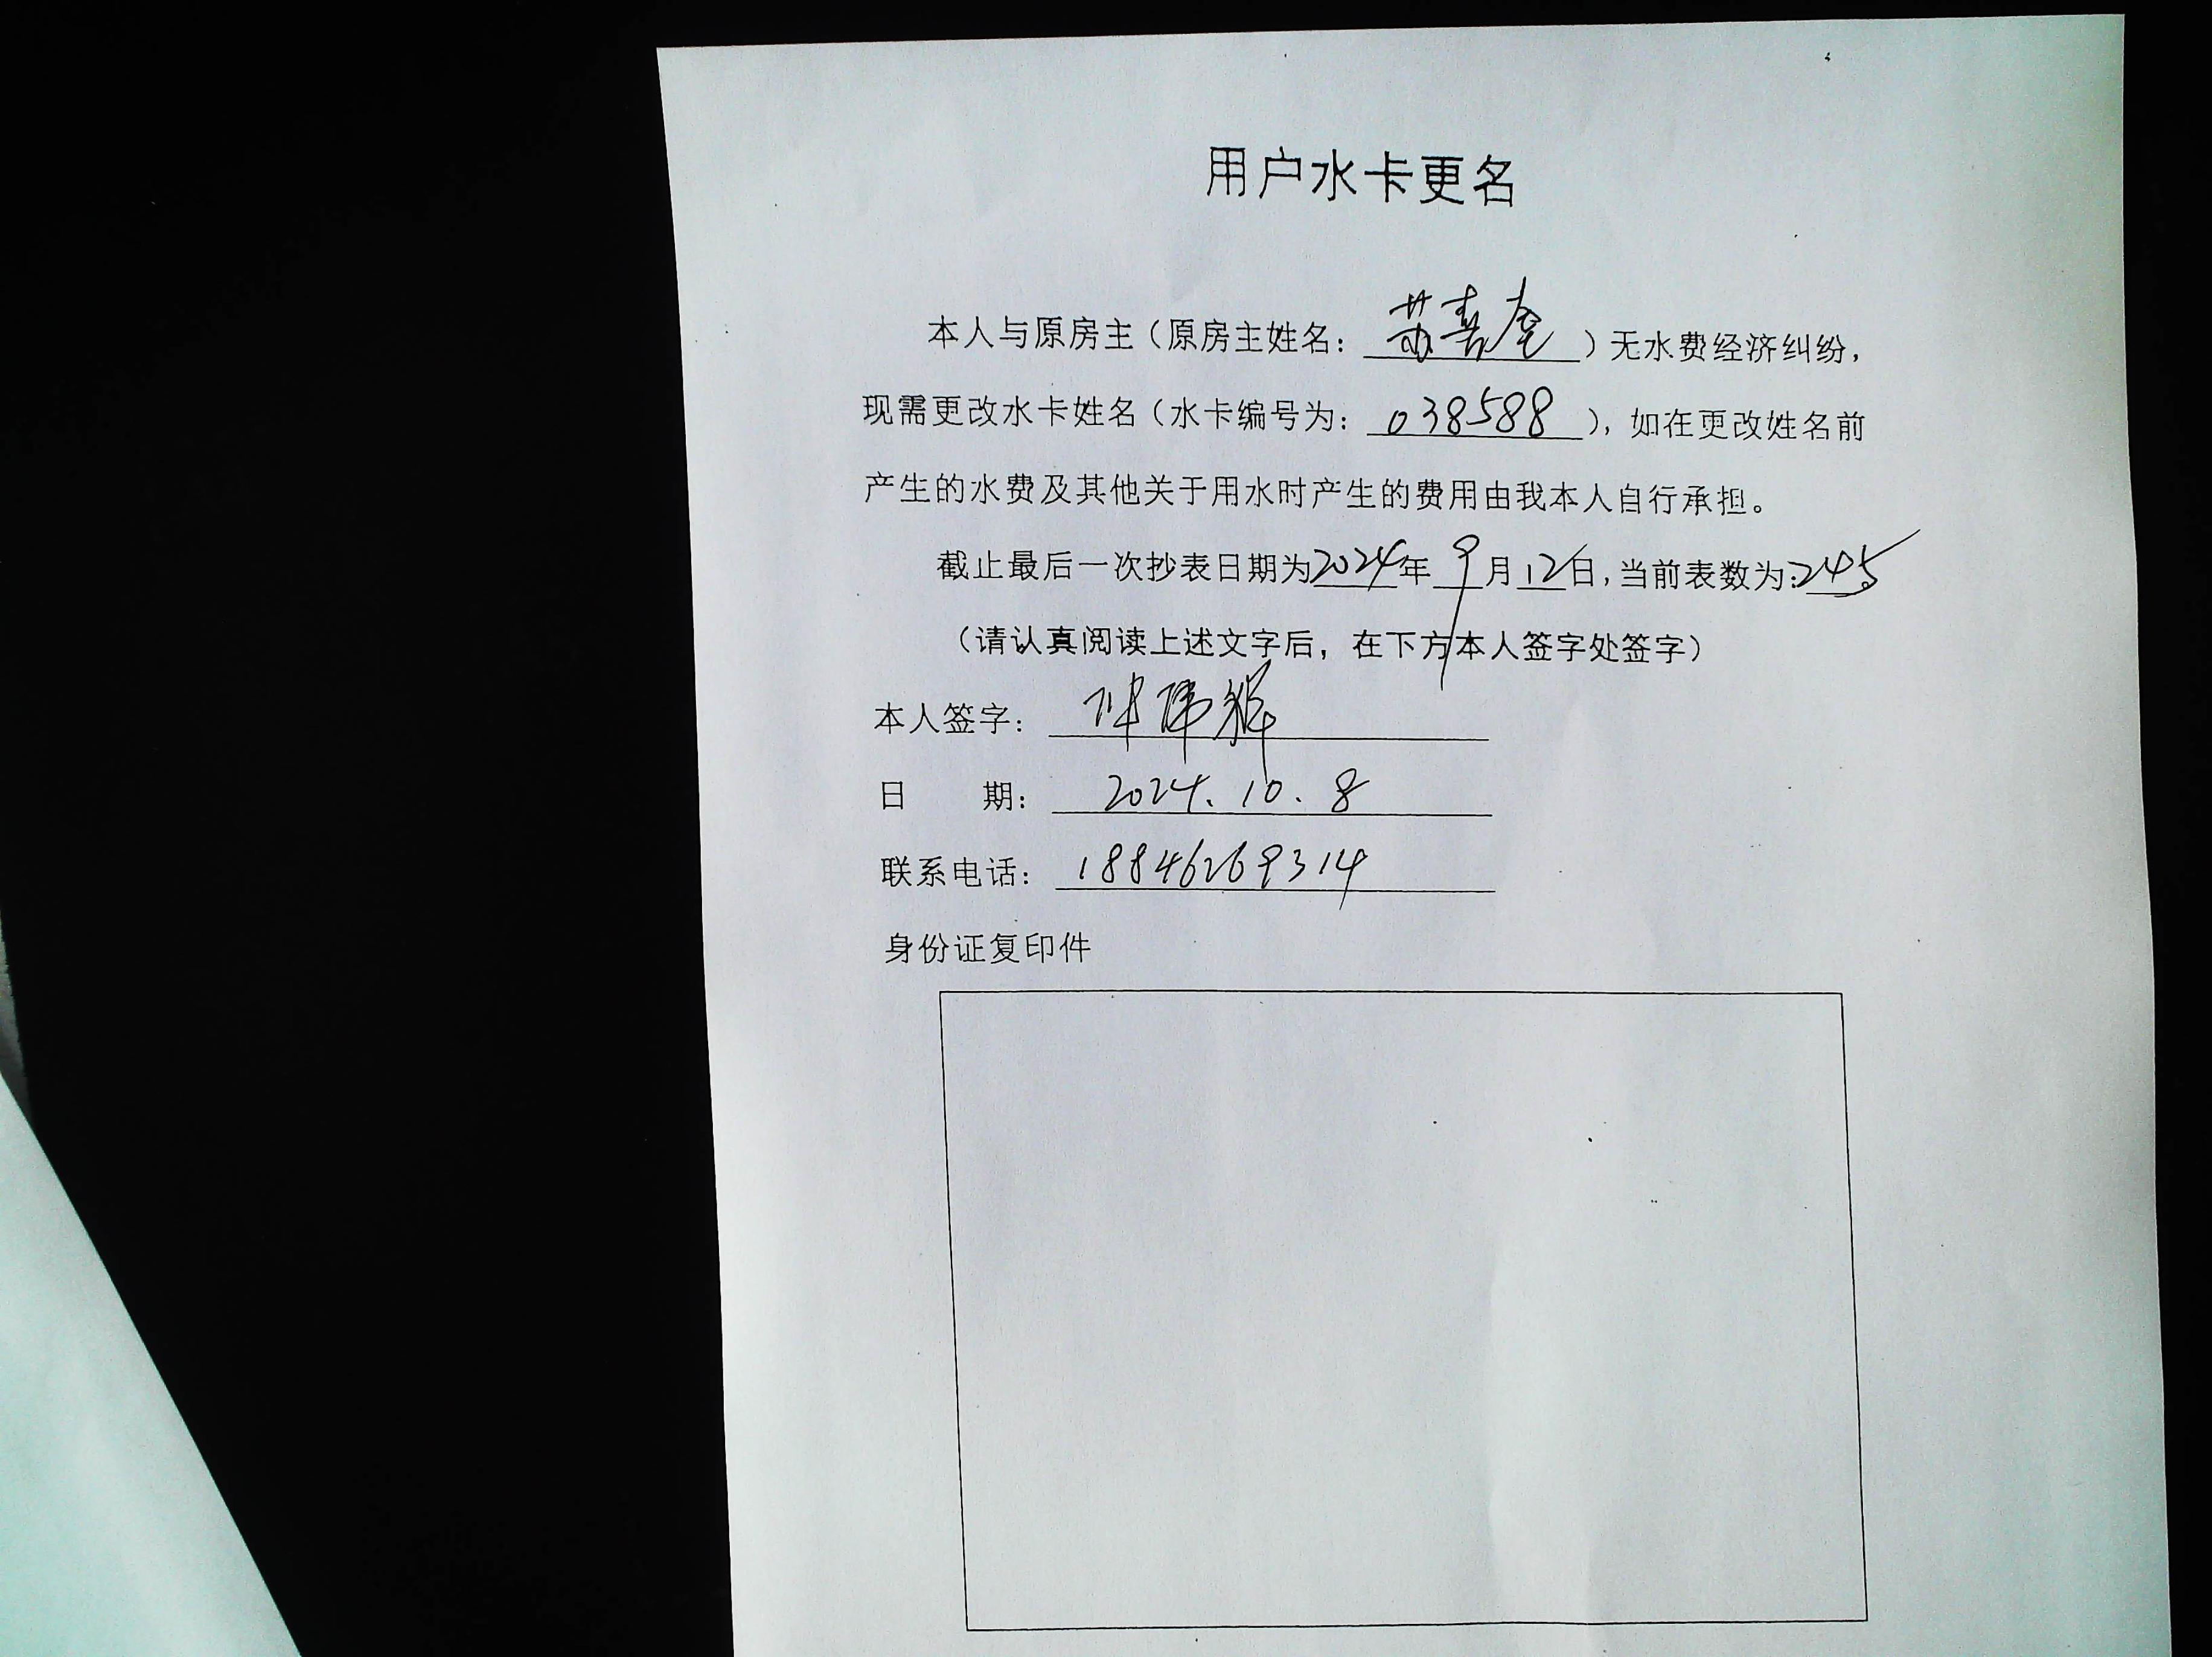 用户水卡更名
本人与原房主（原房主姓名：苏喜奎）无水费经济纠纷，
现需更改水卡姓名（水卡编号为：038588），如在更改姓名前
产生的水费及其他关于用水时产生的费用由我本人自行承担。
截止最后一次抄表日期为2024年9月12日，当前表数为：245
（请认真阅读上述文字后，在下方本人签字处签字）
本人签字：
日 期：2024.10.8
联系电话：18846269314
身份证复印件